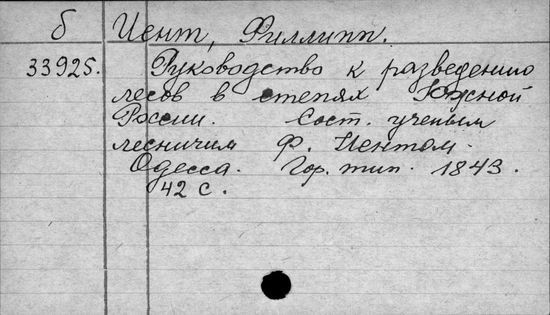 б Иент, Филлипп.
33925. Руководство к разведению
лесов в степях Южной
России. Сост. ученым
лесничим Ф. Иентом.
Одесса. Гор. тип. 1843.
42 с.